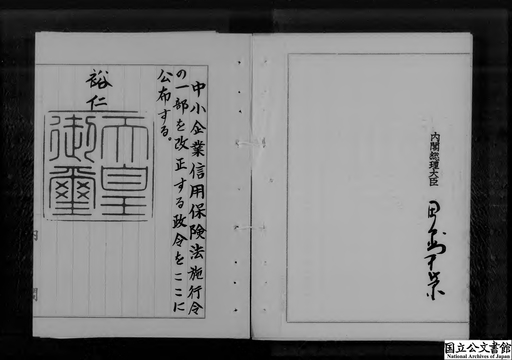 中小企業信用保険法施行令
の一部を改正する政令をここに
公布する。
裕仁
天皇
御璽
内閣
内閣総理大臣
田中角栄
国立公文書館
National Archives of Japan